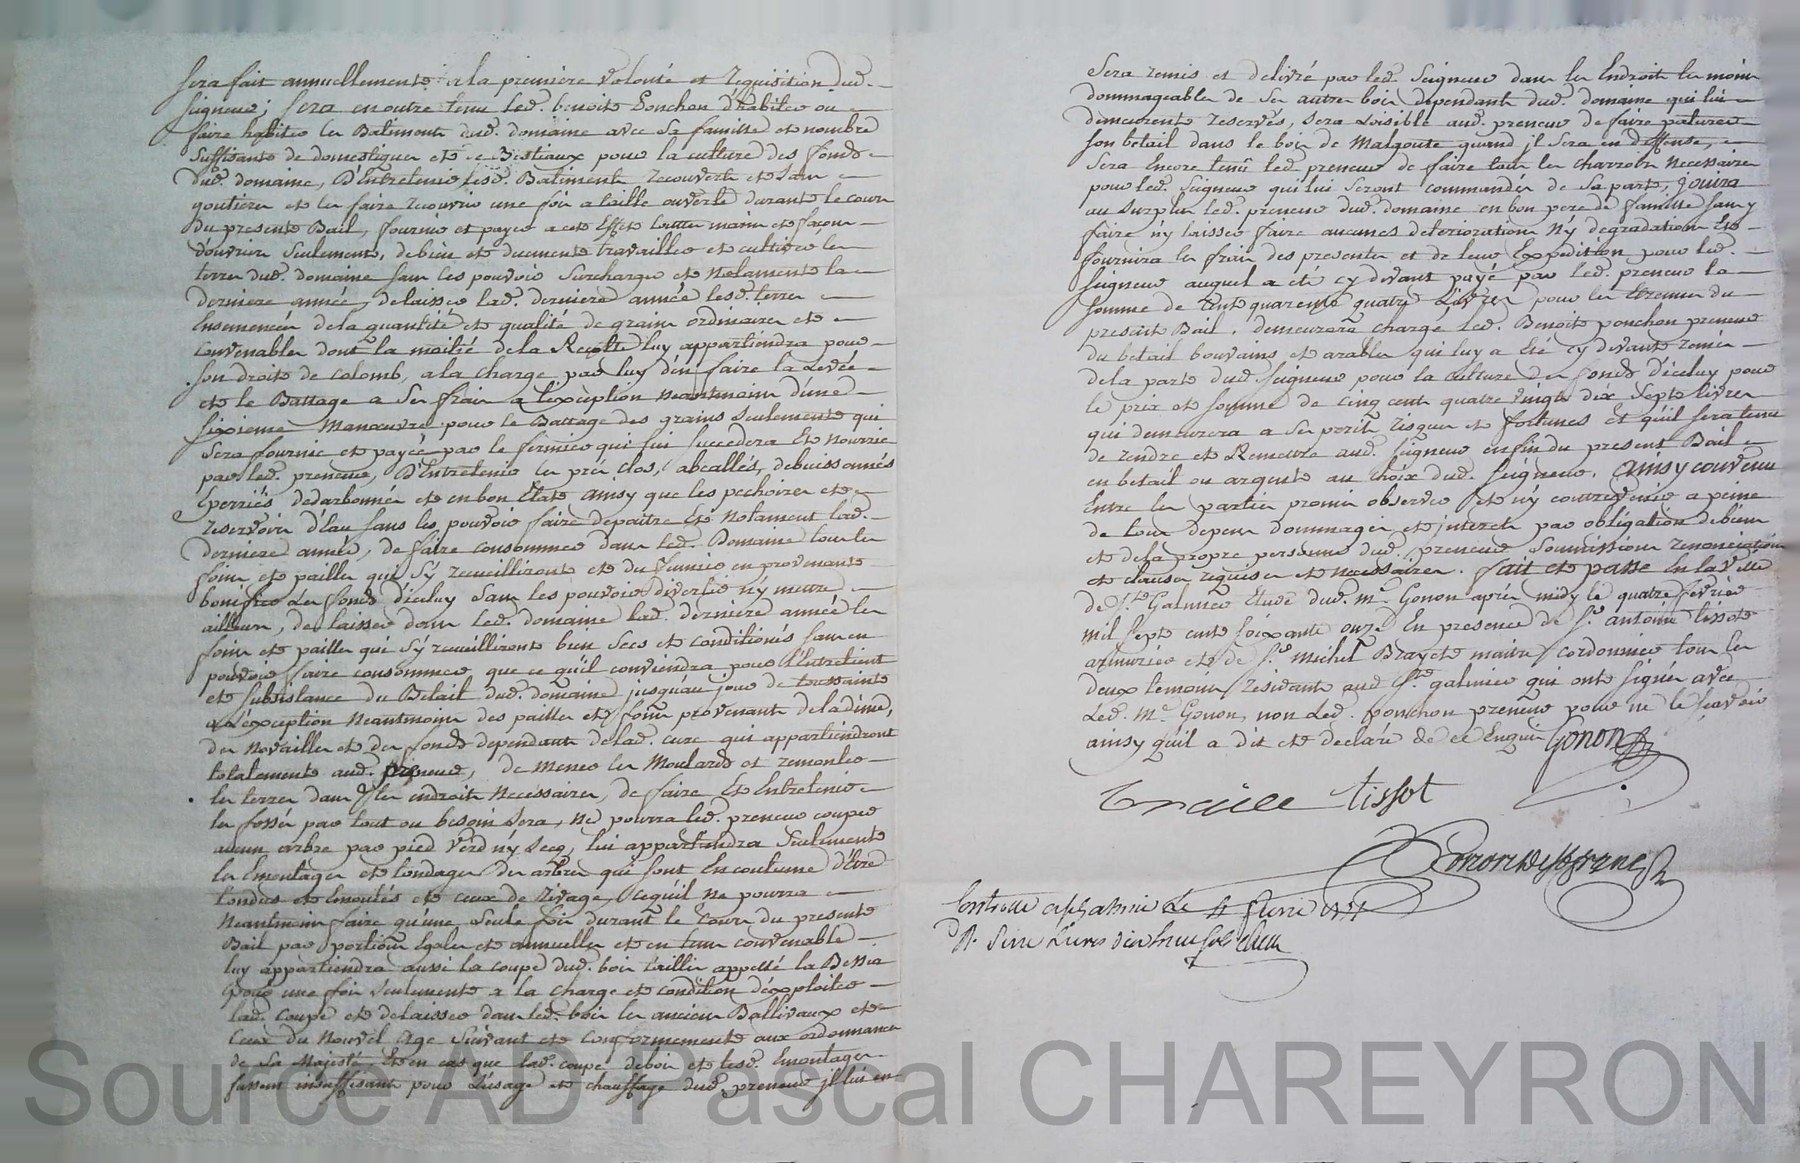 sera fait annuellement a la premiere volonté et Requisition dud.
seigneur; sera en outre tenu led. benoit Ponchon d'habiter ou
faire habiter les Batiments dud. domaine avec sa famille et nombre
suffisants de domestiques et de Bestiaux pour la culture des fonds
dud. domaine, D'Entretenir lesd. Batiments recouverts et sans
goutieres et les faire recouvrir une fois a taille ouverte durant le cours
du present Bail, fournir et payer a cet Effet toutte main et façon
d'ouvrier seulement, de bien et duement travailler et cultiver les
terres dud. domaine sans les pouvoir surcharger et Notament la
derniere année, delaisser lad. derniere année lesd. terres
Ensemencées de la quantité et qualité de grains ordinaires et
convenables dont la moitié de la Recolte luy appartiendra pour
son droit de colomb, a la charge par luy d'en faire la Levée
et le Battage a ses frais a l'exception neantmoins d'une
sixieme Manœuvre pour le Battage des grains seulement qui
sera fournie et payée par le fermier qui lui succedera Et nourrie
par led. preneur, D'Entretenir les prés clos, abcallés, debuissonnés
Eperriés dedarbonnés et en bon Etat ainsy que les pechoires et
reservoirs d'Eau sans les pouvoir faire depaitre Et Notament lad.
derniere année, de faire consommer dans led. Domaine tous les
foins et pailles qui s'y recueilliront et du fumier en provenant
bonifier les fonds d'iceluy sans les pouvoir divertir n'y mettre
ailleurs, de laisser dans led. domaine lad. derniere année les
foins et pailles qui s'y recueilliront bien secs et conditionés sans en
pouvoir faire consommer que ce qu'il conviendra pour l'Entretient
et subsistance du Betail dud. domaine jusqu'au jour de toussaints
a l'exception Neantmoins des pailles et foins provenant de la dime,
des Novailles et des fonds dependant de lad. cure qui appartiendront
totalement aud. preneur, de mener les Moulards et remonter
les terres dans les endroits Necessaires, de faire Et Entretenir
les fossés par tout ou besoin sera, Ne pourra led. preneur couper
aucun arbre par pied Verd n'y secq, lui appartiendra seulement
les Emontages et tondages des arbres qui sont En coutume d'Etre
tondus et Emoutés et ceux de rivage, Ce qu'il ne pourra
Neantmoins faire qu'une seule fois durant le cours du present
Bail par portions Egales et annuelles et en tems convenable
luy appartiendra aussi la coupe dud. bois taillis appellé la Bessia
pour une fois seulement a la charge et condition d'exploiter
lad. coupe et delaisser dans led. bois les anciens Ballivaux et
ceux du nouvel age suivant et conformement aux ordonnances
de sa Majesté Et en cas que lad. coupe de bois et lesd. Emontages
fussent insuffisants pour l'usage et chauffage dud. preneur il lui en
sera remis et delivré par led. seigneur dans les Endroits les moins
dommageables de ses autres bois dependants dud. domaine qui lui
demeurent reservés, sera Loisible aud. preneur de faire paturer
son betail dans le bois de Malgoute quand il sera en deffense,
sera Encore tenû led. preneur de faire tous les charrois necessaires
pour led. seigneur qui lui seront commandés de sa part, jouira
au surplus led. preneur dud. domaine en bon pere de famille sans y
faire n'y laisser faire aucunes deteriorations n'y degradations Et
fournira les frais des presentes et de leur Expedition pour led.
seigneur auquel a été cy devant payé par led. preneur la
somme de Cent quarente quatre Livres pour les Etrennes du
present Bail. demeurera chargé led. Benoit ponchon preneur
du betail bouvains et arables qui luy a Eté cy devant remis
de la part dud. seigneur pour la culture des fonds d'iceluy pour
le prix et somme de cinq cent quatre vingts dix sept livres
qui demeurera a ses perils risques et fortunes Et qu'il sera tenu
de rendre et Remettre aud. seigneur en fin du present Bail
en betail ou argents au choix dud. seigneur. Ainsy convenu
Entre les parties promis observer et n'y contrevenir a peine
de tous depens dommages et interets par obligation de biens
et de sa propre personne dud. preneur soumissions renonciations
et clauses requises et necessaires. fait et passé en la ville
de St. Galmier Etude dud. Me. Gonon apres midy le quatre fevrier
mil sept cent soixante onze En presence de Sr. antoine tissot
armurier et de Sr. Michel Brayet maitre cordonnier tous les
deux temoins residants aud. St. galmier qui ont signé avec
Led. Me. Gonon, non Led. ponchon preneur pour ne le scavoir
ainsy qu'il a dit et declaré de ce Enquis Gonon
tissot
Controllé a St Galmier Le 4 fevrier 1771
R.